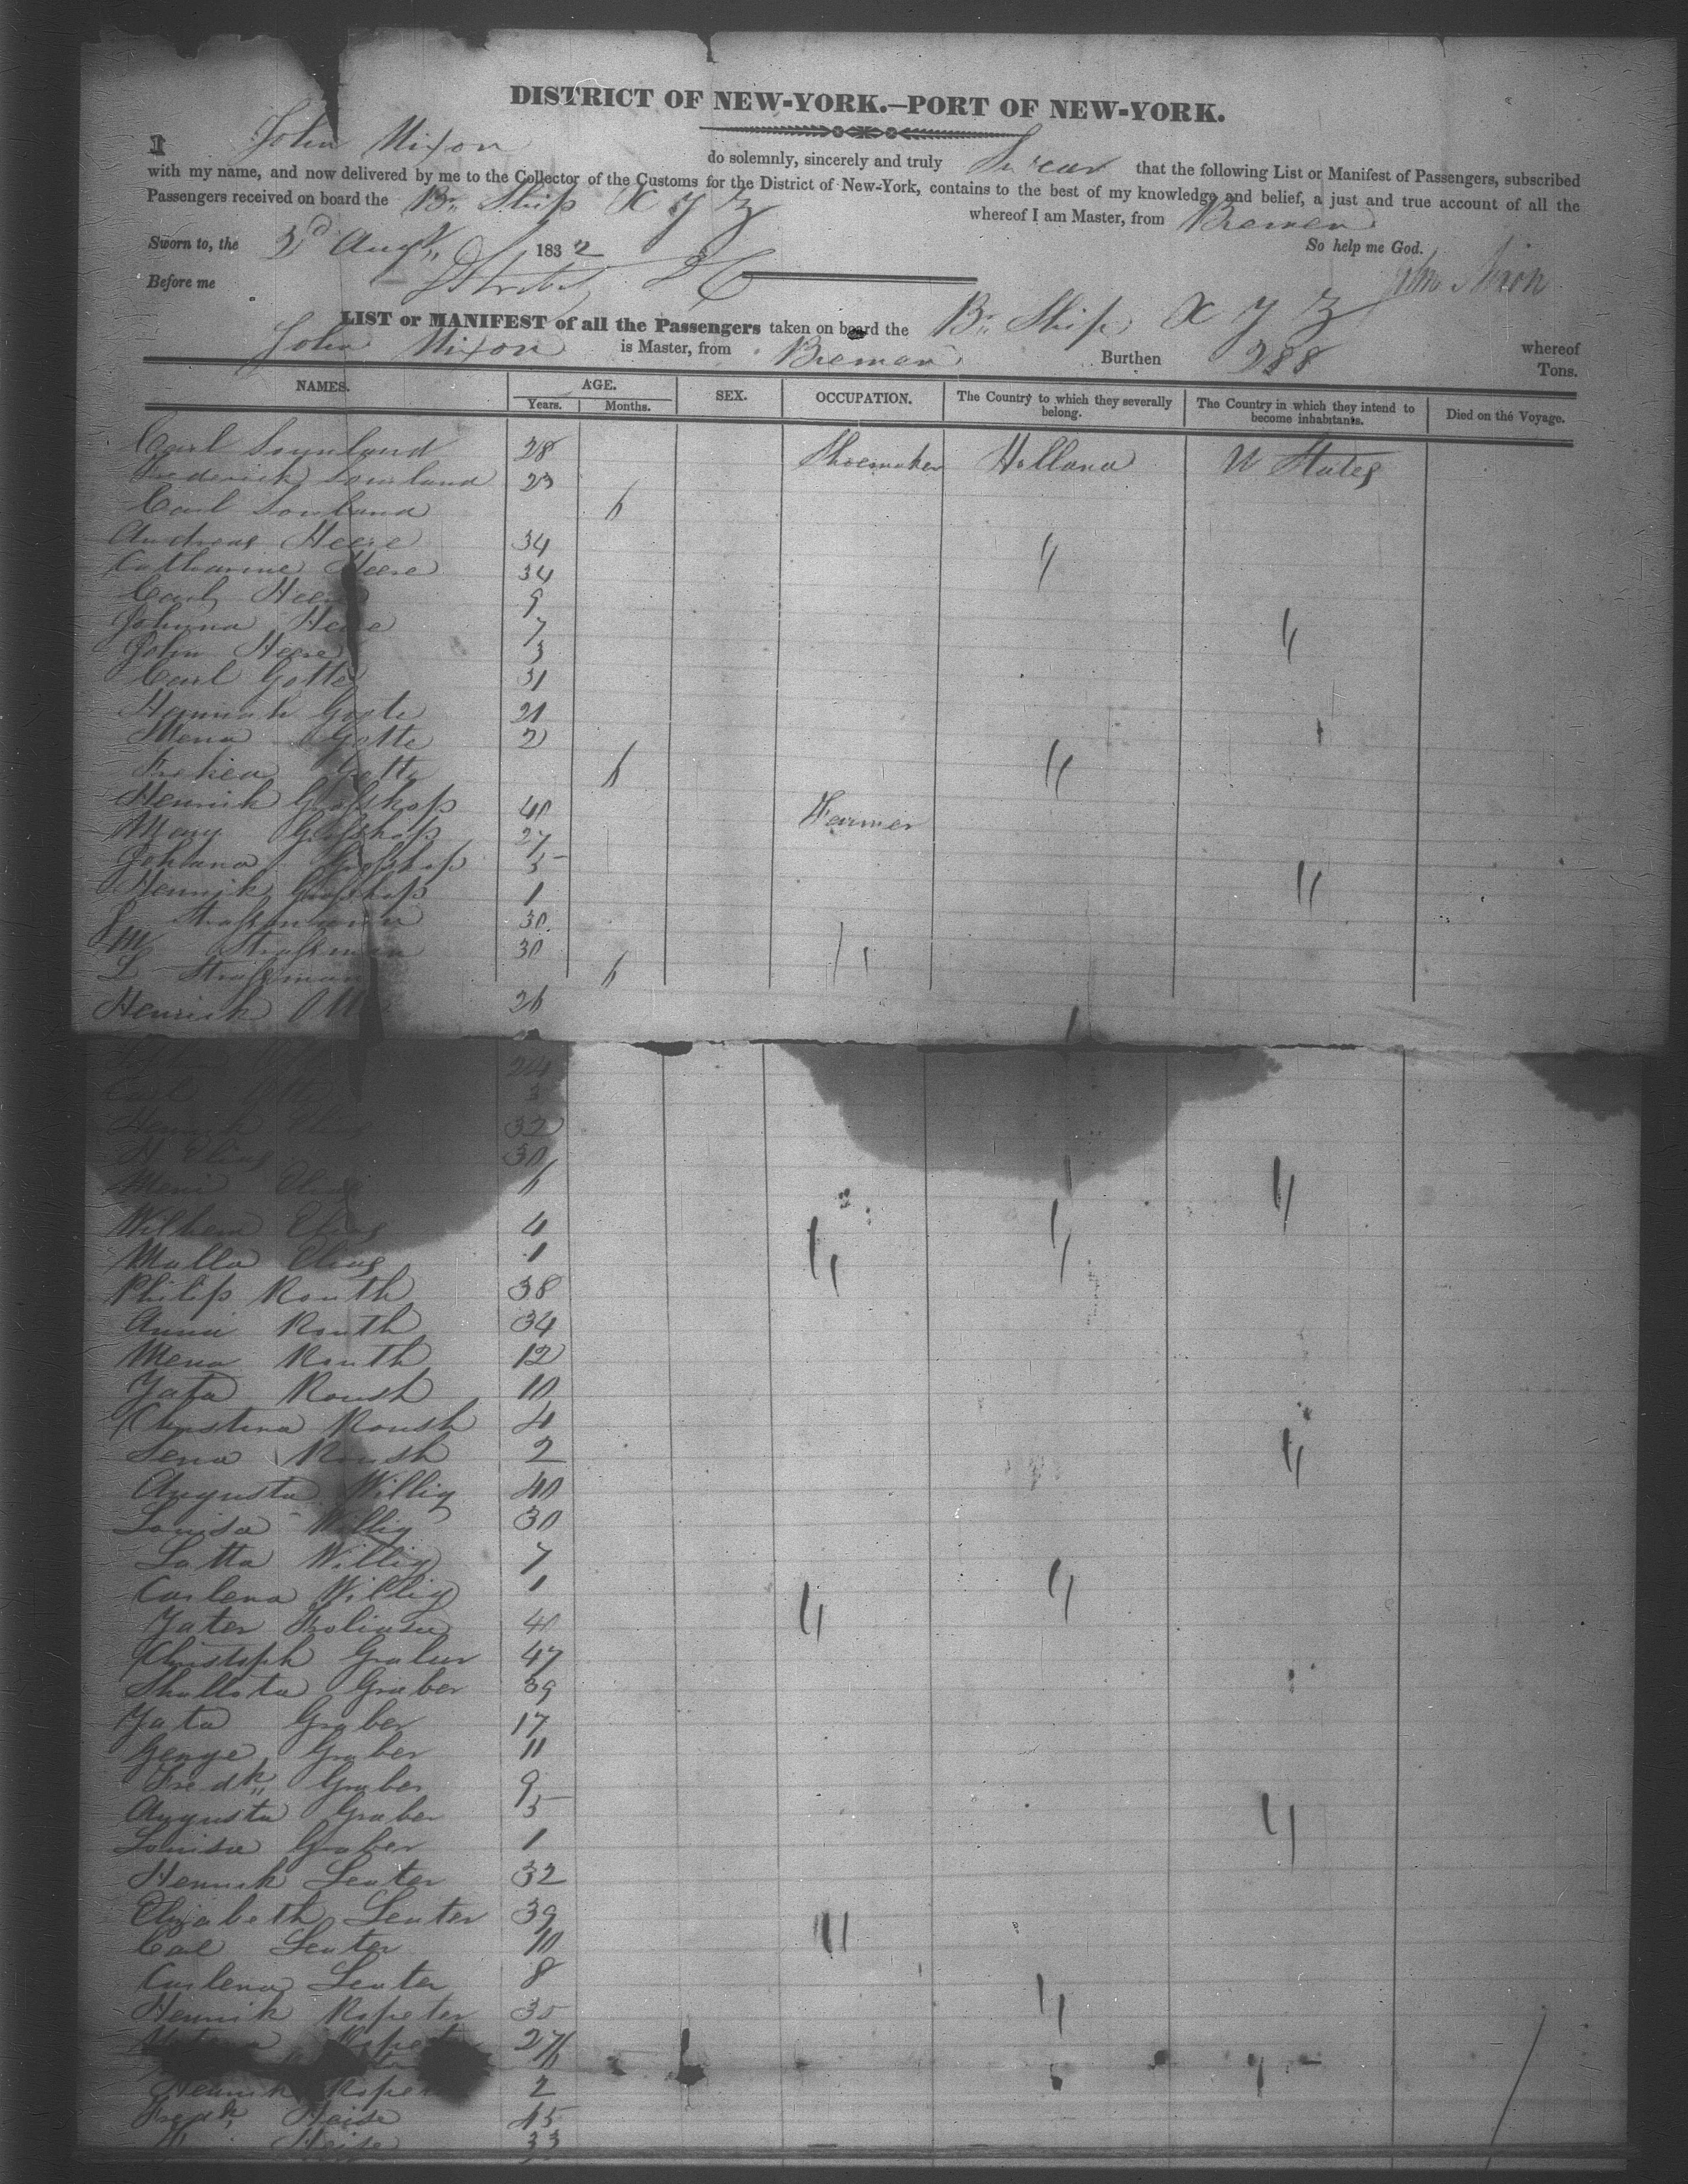 DISTRICT OF NEW-YORK.—PORT OF NEW-YORK.
I John Nixon do solemnly, sincerely and truly Swear that the following List or Manifest of Passengers, subscribed
with my name, and now delivered by me to the Collector of the Customs for the District of New-York, contains to the best of my knowledge and belief, a just and true account of all the
Passengers received on board the Br. Ship X Y Z whereof I am Master, from Bremen
Sworn to, the 3d Augt. 1832 So help me God.
Before me John Nixon
LIST or MANIFEST of all the Passengers taken on board the Br. Ship X Y Z whereof
John Nixon is Master, from Bremen Burthen 288 Tons.
NAMES. AGE. SEX. OCCUPATION. The Country to which they severally belong. The Country in which they intend to become inhabitants. Died on the Voyage.
Years. Months.
Carl 28 Shoemaker Holland U States
Frederick 23
Carl 6
Andreas Heere 34 "
Catharine Heere 34
Carl Heere 9
Johnna Heere 7 "
John Heere 3
Carl Gotte 31
Hannah Gotte 21
Mena Gotte 2
Gotte 6 "
Henrich Grofshop 40 Farmer
Mary Grofshop 27
Johanna Grofshop 5
Henrich Grofshop 1 "
J Strafsmann 30
M Strafsman 30 "
L Strafsman 6
Henrich Otte 26
24
Carl Otte 3
Henrich Elias 32
H Elias 30
Meni Elias 6 "
Wilhem Elias 4 "
Malla Elias 1 "
Philip Routh 38
Anna Routh 34
Mena Routh 12
Roush 10
Christina Roush 4
Lena Roush 2 "
Augusta Willig 40
Louisa Willig 30
Latta Willig 7
Carlena Willig 1 " "
40
Christoph Graber 47
Shallota Graber 39
Yata Graber 17
George Graber 11
Fredk. Graber 9
Augusta Graber 5 "
Louisa Graber 1
Henrich Leuter 32
Elizabeth Leuter 39 "
Carl Leuter 10
Carlena Leuter 8
Henrik Ropeter 35 "
Ropeter 27
6
Henrik Ropeter 2
Fredk. Heise 45
Heise 33